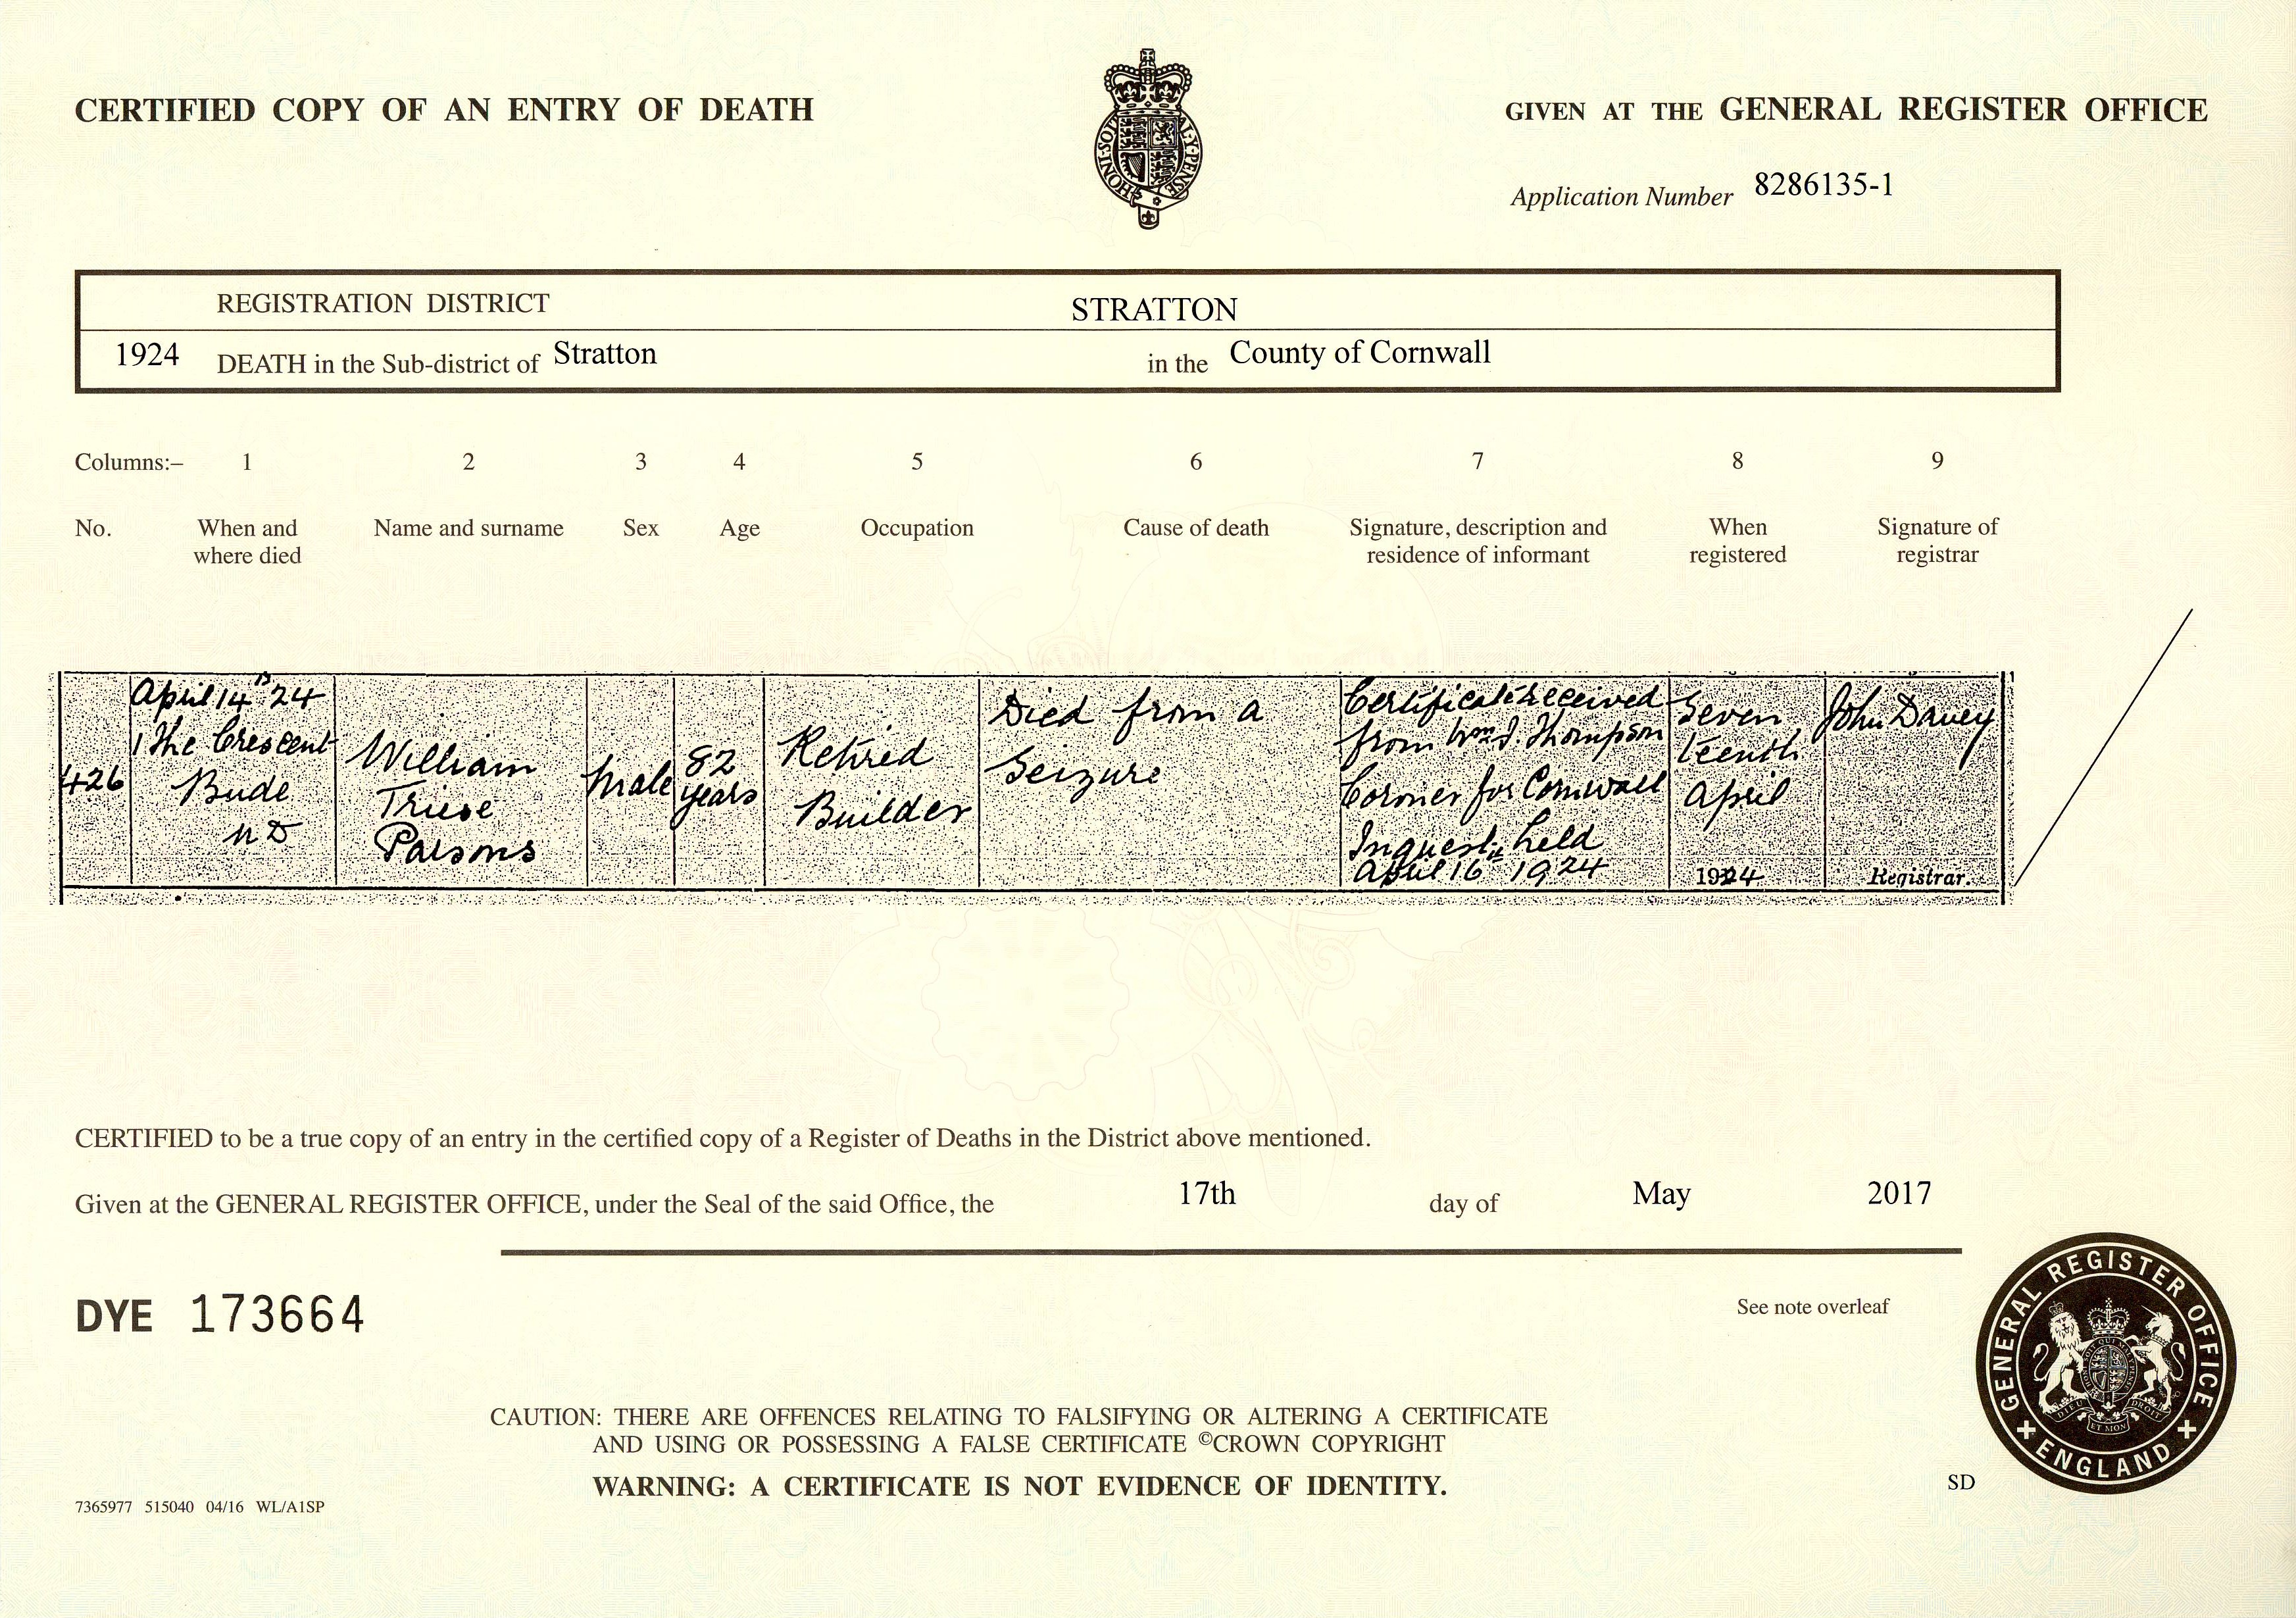 CERTIFIED COPY OF AN ENTRY OF DEATH
GIVEN AT THE GENERAL REGISTER OFFICE
HONI·SOIT
Y·PENSE
Application Number 8286135-1
REGISTRATION DISTRICT STRATTON
1924 DEATH in the Sub-district of Stratton in the County of Cornwall
Columns:– 1 2 3 4 5 6 7 8 9
No.
When and
where died
Name and surname
Sex
Age
Occupation
Cause of death
Signature, description and
residence of informant
When
registered
Signature of
registrar
426
April 14th 24
1 The Crescent
Bude
U D
William
Triese
Parsons
Male
82
years
Retired
Builder
Died from a
Seizure
Certificate received
from Wm J. Thompson
Coroner for Cornwall
Inquest held
April 16th 1924
Seven
teenth
April
1924
John Davey
Registrar.
CERTIFIED to be a true copy of an entry in the certified copy of a Register of Deaths in the District above mentioned.
Given at the GENERAL REGISTER OFFICE, under the Seal of the said Office, the 17th day of May 2017
DYE 173664
See note overleaf
GENERAL REGISTER OFFICE
ENGLAND
DIEU ET MON DROIT
CAUTION: THERE ARE OFFENCES RELATING TO FALSIFYING OR ALTERING A CERTIFICATE
AND USING OR POSSESSING A FALSE CERTIFICATE ©CROWN COPYRIGHT
WARNING: A CERTIFICATE IS NOT EVIDENCE OF IDENTITY.
SD
7365977 515040 04/16 WL/A1SP